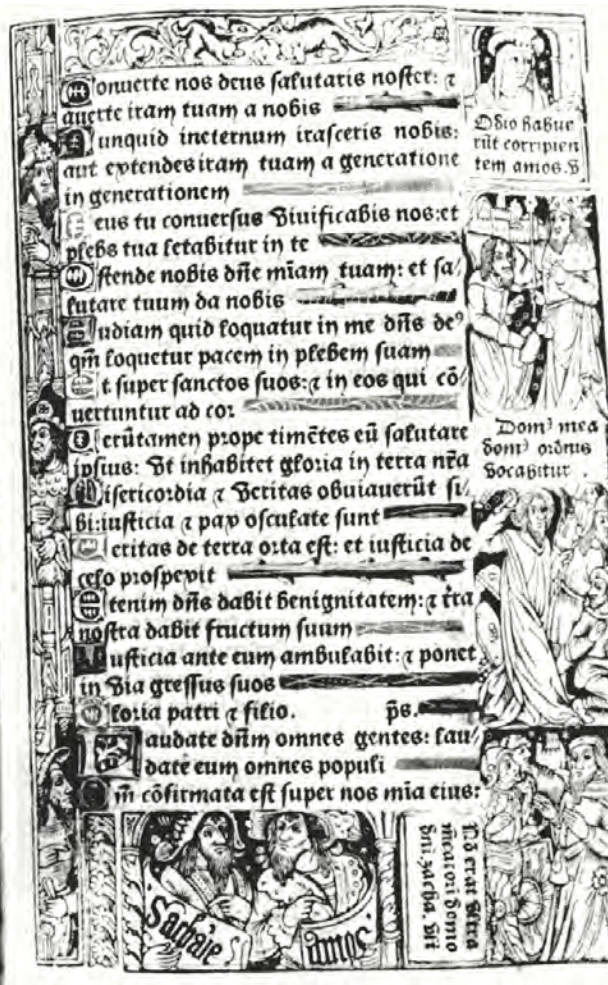 Conuerte nos deus salutaris noster: ⁊
auerte iram tuam a nobis
Nunquid ineternum irasceris nobis:
aut extendes iram tuam a generatione
in generationem
Deus tu conuersus viuificabis nos:et
plebs tua letabitur in te
Ostende nobis dñe miam tuam: et sa/
lutare tuum da nobis
Audiam quid loquatur in me dñs de⁹
qm̃ loquetur pacem in plebem suam
Et super sanctos suos:⁊ in eos qui cõ/
uertuntur ad cor
Verũtamen prope timẽtes eũ salutare
ipsius: vt inhabitet gloria in terra nr̃a
Misericordia ⁊ veritas obuiauerũt si/
bi:iusticia ⁊ pax osculate sunt
Veritas de terra orta est: et iusticia de
celo prospexit
Etenim dñs dabit benignitatem:⁊ tr̃a
nostra dabit fructum suum
Iusticia ante eum ambulabit:⁊ ponet
in via gressus suos
Gloria patri ⁊ filio. p̃s.
Laudate dñm omnes gentes: lau/
date eum omnes populi
Qm̃ cõfirmata est super nos mia eius:
Odio habue
rũt corripien
tem amos. v
Dom⁹ mea
dom⁹ orõnis
vocabitur.
Nõ erat vltra
mẽcator ĩ domo
dni. zacha. vlt
Sachaie
amos